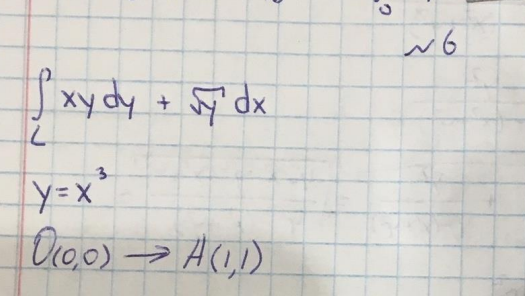 ~ 6
∫_L xy dy + √y dx
y = x³
O(0,0) → A(1,1)